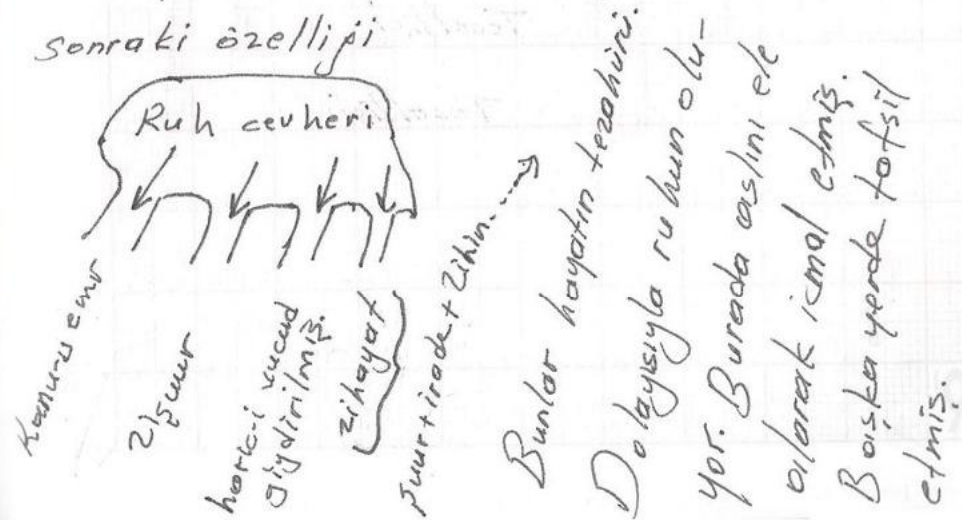 sonraki özelliği
Ruh cevheri
Kanun-u emr
zîşuur
harici vücud
giydirilmiş.
zihayat
şuur+irade+zihin
Bunlar hayatın tezahürü.
Dolayısıyla ruhun olu-
yor. Burada aslını ele
alarak icmal etmiş.
Başka yerde tafsil
etmiş.